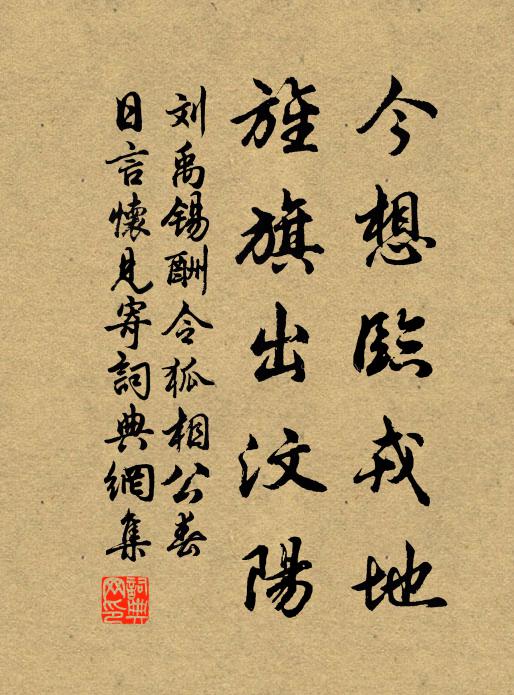 今想臨戎地
旌旗出汶陽
刘禹锡酬令狐相公春
日言懷見寄詞典網集
詞典
网印